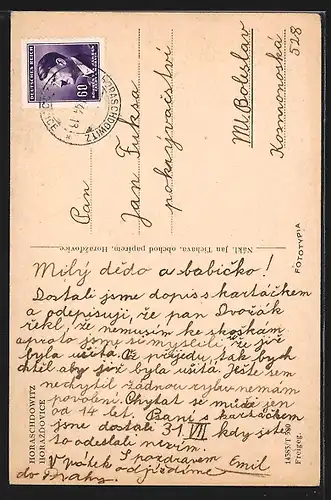 DEUTSCHES REICH
60
HORESCHDOWITZ
Pan
Jan Fuksa
pokrývačství
Ml. Boleslav
Komenská
528
Nákl. Jan Tichava, obchod papírem, Horažďovice
FOTOTYPIA
HORASCHDOWITZ
HORAŽĎOVICE
Freigeg.
Milý dědo a babičko!
Dostali jsme dopis s kartáčkem
a odepisuji, že pan Dvořák
řekl, že nemusím ke zkoškám
a proto jsme si mysleli že již
byla ušitá. Až přijedu, tak bych
chtěl aby již byla ušitá. Ještě sem
nechytil žádnou rybu nemám
povolení. Chytat se může jen
od 14 let. Psaní s kartáčkem
jsme dostali 31 VII kdy jste
to odeslali nevím.
S pozdravem Emil
V pátek odjíždíme
do Prahy.